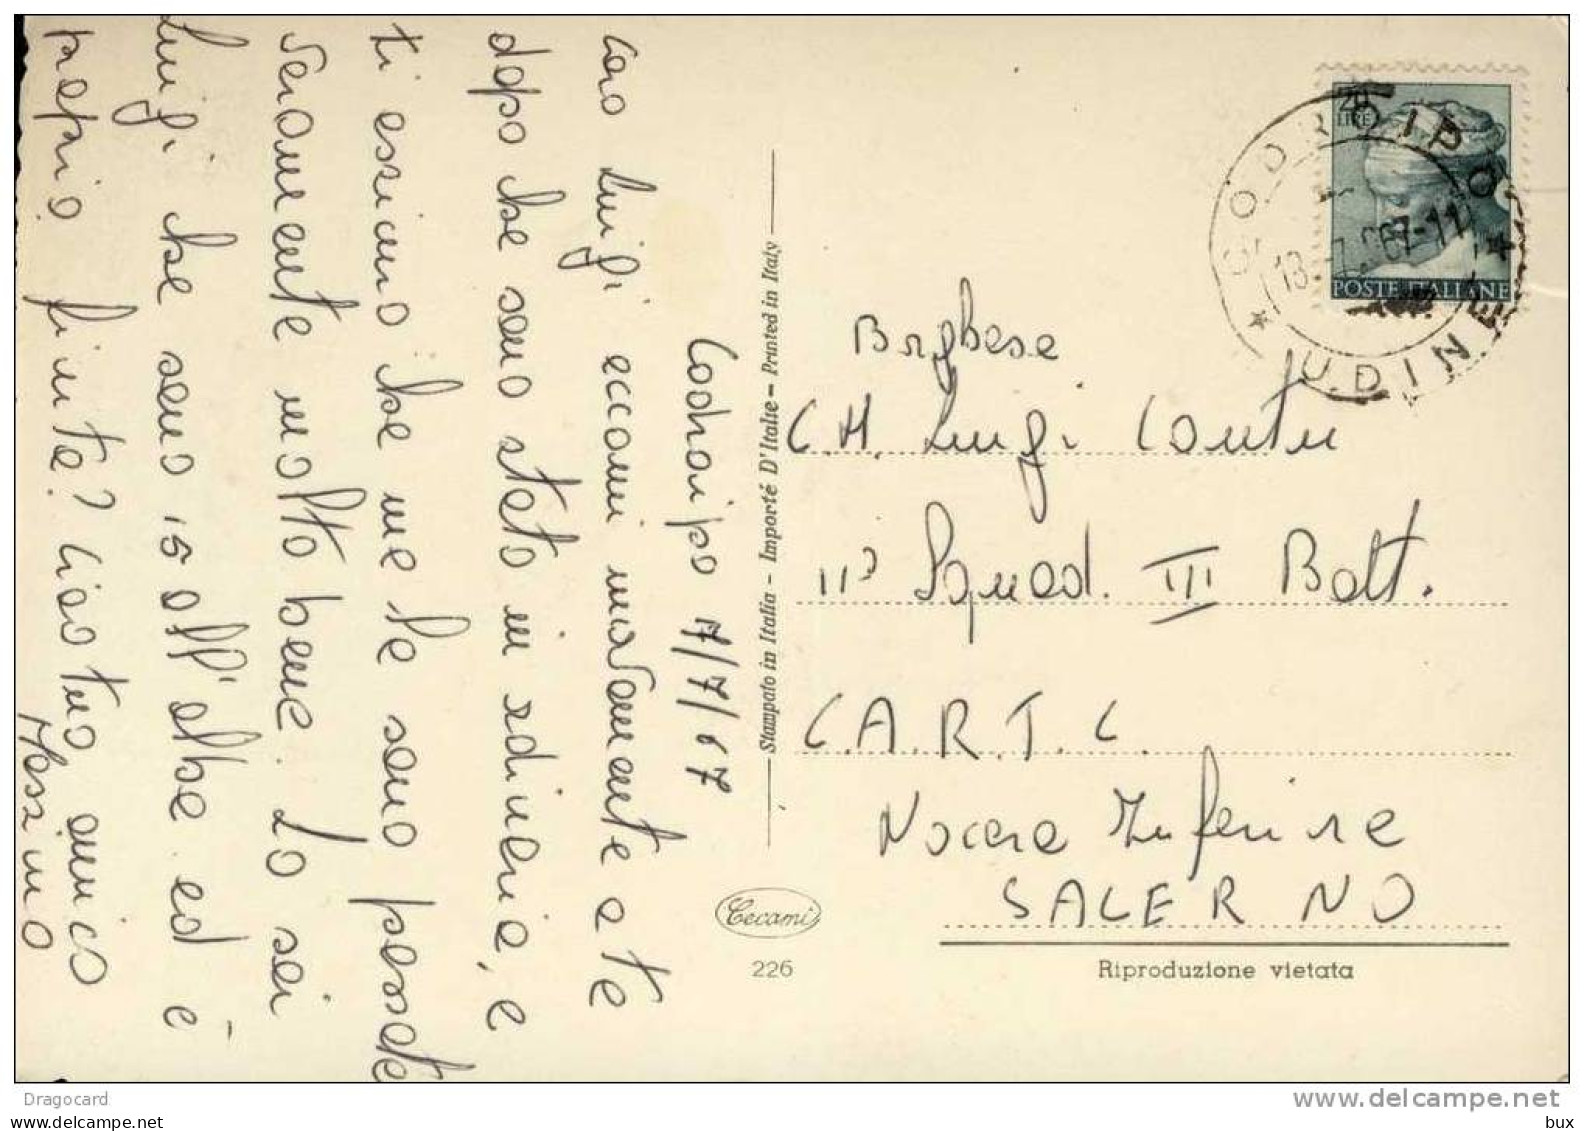 Codroipo 7/7/67
caro Luigi eccomi nuovamente a te
dopo che sono stato in edineria, e
ti essicuro che me le sono pessete
veramente molto bene. Lo sei
Luigi che sono 15 all'albe ed è
proprio finita? Ciao tuo amico
Massimo
Stampato in Italia - Importé D'Italie - Printed in Italy
Cecami
226
20
LIRE
POSTE ITALIANE
CODROIPO
UDINE
Borghese
C.H. Luigi Contu
11ª Squad. III Batt.
C.A.R.T.C.
Nocera Inferiore
SALERNO
Riproduzione vietata
Dragocard
www.delcampe.net
http://www.delcampe.net
bux